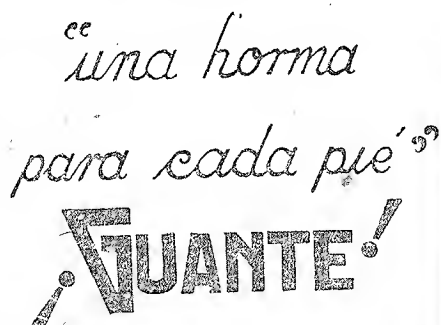 “una horma
para cada pié”
¡GUANTE!